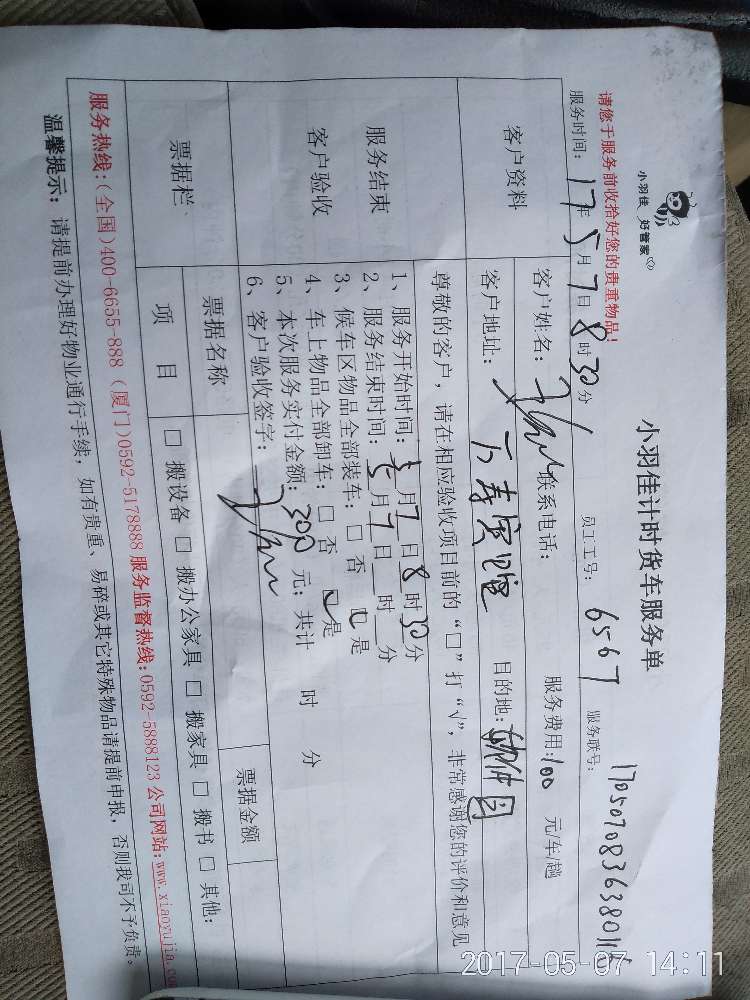 小羽佳 好管家
小羽佳计时货车服务单
请您于服务前收拾好您的贵重物品！
服务时间：17年5月7日8时30分 员工工号：6567 服务联号：
客户资料
客户姓名： 联系电话： 服务费用：100 元/车/趟
客户地址：万寿宾馆 目的地：软件园
服务结束
客户验收
尊敬的客户，请在相应验收项目前的“□”打“√”，非常感谢您的评价和意见
1、服务开始时间：5月7日8时30分
2、服务结束时间：5月7日__时__分
3、候车区物品全部装车：□ 否 ☑ 是
4、车上物品全部卸车：□ 否 ☑ 是
5、本次服务实付金额：300 元；共计 时 分
6、客户验收签字：
票据栏
票据名称 票据金额
项 目 □ 搬设备 □ 搬办公家具 □ 搬家具 □ 搬书 □ 其他：
服务热线：（全国）400-6655-888 （厦门）0592-5178888 服务监督热线：0592-5888123 公司网站：www.xiaoyujia.co
温馨提示：请提前办理好物业通行手续，如有贵重、易碎或其它特殊物品请提前申报，否则我司不予负责。
2017-05-07 14:11